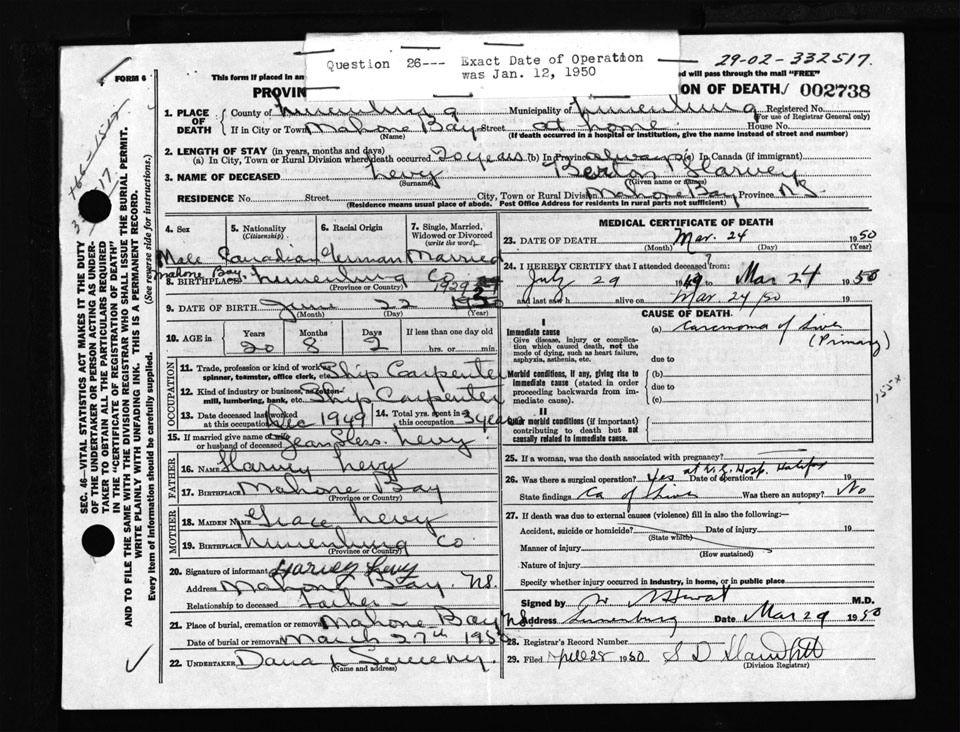 Question 26--- Exact Date of Operation
was Jan. 12, 1950
29-02-332517.
FORM 6
This form if placed in an
ed will pass through the mail "FREE"
PROVIN
ON OF DEATH / 002738
1. PLACE OF DEATH
County of Lunenburg Municipality of Lunenburg Registered No.
(For use of Registrar General only)
If in City or Town Mahone Bay Street at home House No.
(Name) (If death occurred in a hospital or institution, give the name instead of street and number)
2. LENGTH OF STAY (in years, months and days)
(a) In City, Town or Rural Division where death occurred 20 years (b) In Province always (c) In Canada (if immigrant)
3. NAME OF DECEASED Levy Harvey
(Surname) (Given name or names)
RESIDENCE No. Street City, Town or Rural Division Mahone Bay Province N.S
(Residence means usual place of abode. Post Office Address for residents in rural parts not sufficient)
4. Sex
5. Nationality (Citizenship)
6. Racial Origin
7. Single, Married, Widowed or Divorced (write the word)
Male Canadian German Married
8. BIRTHPLACE Mahone Bay Lunenburg Co
(Province or Country)
1929
9. DATE OF BIRTH June 22
(Month) (Day) (Year)
10. AGE in
Years Months Days If less than one day old
20 8 2 hrs. or min.
OCCUPATION
11. Trade, profession or kind of work as spinner, teamster, office clerk, etc. Ship Carpenter
12. Kind of industry or business, as cotton-mill, lumbering, bank, etc. Ship Carpenter
13. Date deceased last worked at this occupation Dec 1949
14. Total yrs. spent in this occupation 3 years
15. If married give name of wife or husband of deceased Levy
FATHER
16. NAME Harvey Levy
17. BIRTHPLACE Mahone Bay
(Province or Country)
MOTHER
18. MAIDEN NAME Grace Levy
19. BIRTHPLACE Lunenburg Co
(Province or Country)
20. Signature of informant Harvey Levy
Address Mahone Bay N.S.
Relationship to deceased Father
21. Place of burial, cremation or removal Mahone Bay N.S.
Date of burial or removal March 27th 1950
22. UNDERTAKER Dana L Sweeny.
(Name and address)
MEDICAL CERTIFICATE OF DEATH
23. DATE OF DEATH Mar. 24 1950
(Month) (Day) (Year)
24. I HEREBY CERTIFY that I attended deceased from:
July 29 1949 Mar 24 1950
and last saw h alive on Mar 24/50 19
CAUSE OF DEATH
I
Immediate cause
Give disease, injury or complication which caused death, not the mode of dying, such as heart failure, asphyxia, asthenia, etc.
(a) Carcinoma of Liver
(Primary)
due to
Morbid conditions, if any, giving rise to immediate cause (stated in order proceeding backwards from immediate cause).
(b)
due to
(c)
155x
II
Other morbid conditions (if important) contributing to death but not causally related to immediate cause.
25. If a woman, was the death associated with pregnancy?
26. Was there a surgical operation? Yes at V.G. Hosp. Halifax
Date of operation 19
State findings Ca of Liver Was there an autopsy? No
27. If death was due to external causes (violence) fill in also the following:—
Accident, suicide or homicide? Date of injury 19
(State which)
Manner of injury
(How sustained)
Nature of injury
Specify whether injury occurred in industry, in home, or in public place
Signed by M.D.
Address Lunenburg Date Mar 29 1950
28. Registrar's Record Number
29. Filed April 28 1950
(Division Registrar)
SEC. 46—VITAL STATISTICS ACT MAKES IT THE DUTY
OF THE UNDERTAKER OR PERSON ACTING AS UNDER-
TAKER TO OBTAIN ALL THE PARTICULARS REQUIRED
IN THE "CERTIFICATE OF REGISTRATION OF DEATH"
AND TO FILE THE SAME WITH THE DIVISION REGISTRAR WHO SHALL ISSUE THE BURIAL PERMIT.
WRITE PLAINLY WITH UNFADING INK. THIS IS A PERMANENT RECORD.
Every item of information should be carefully supplied. (See reverse side for instructions.)